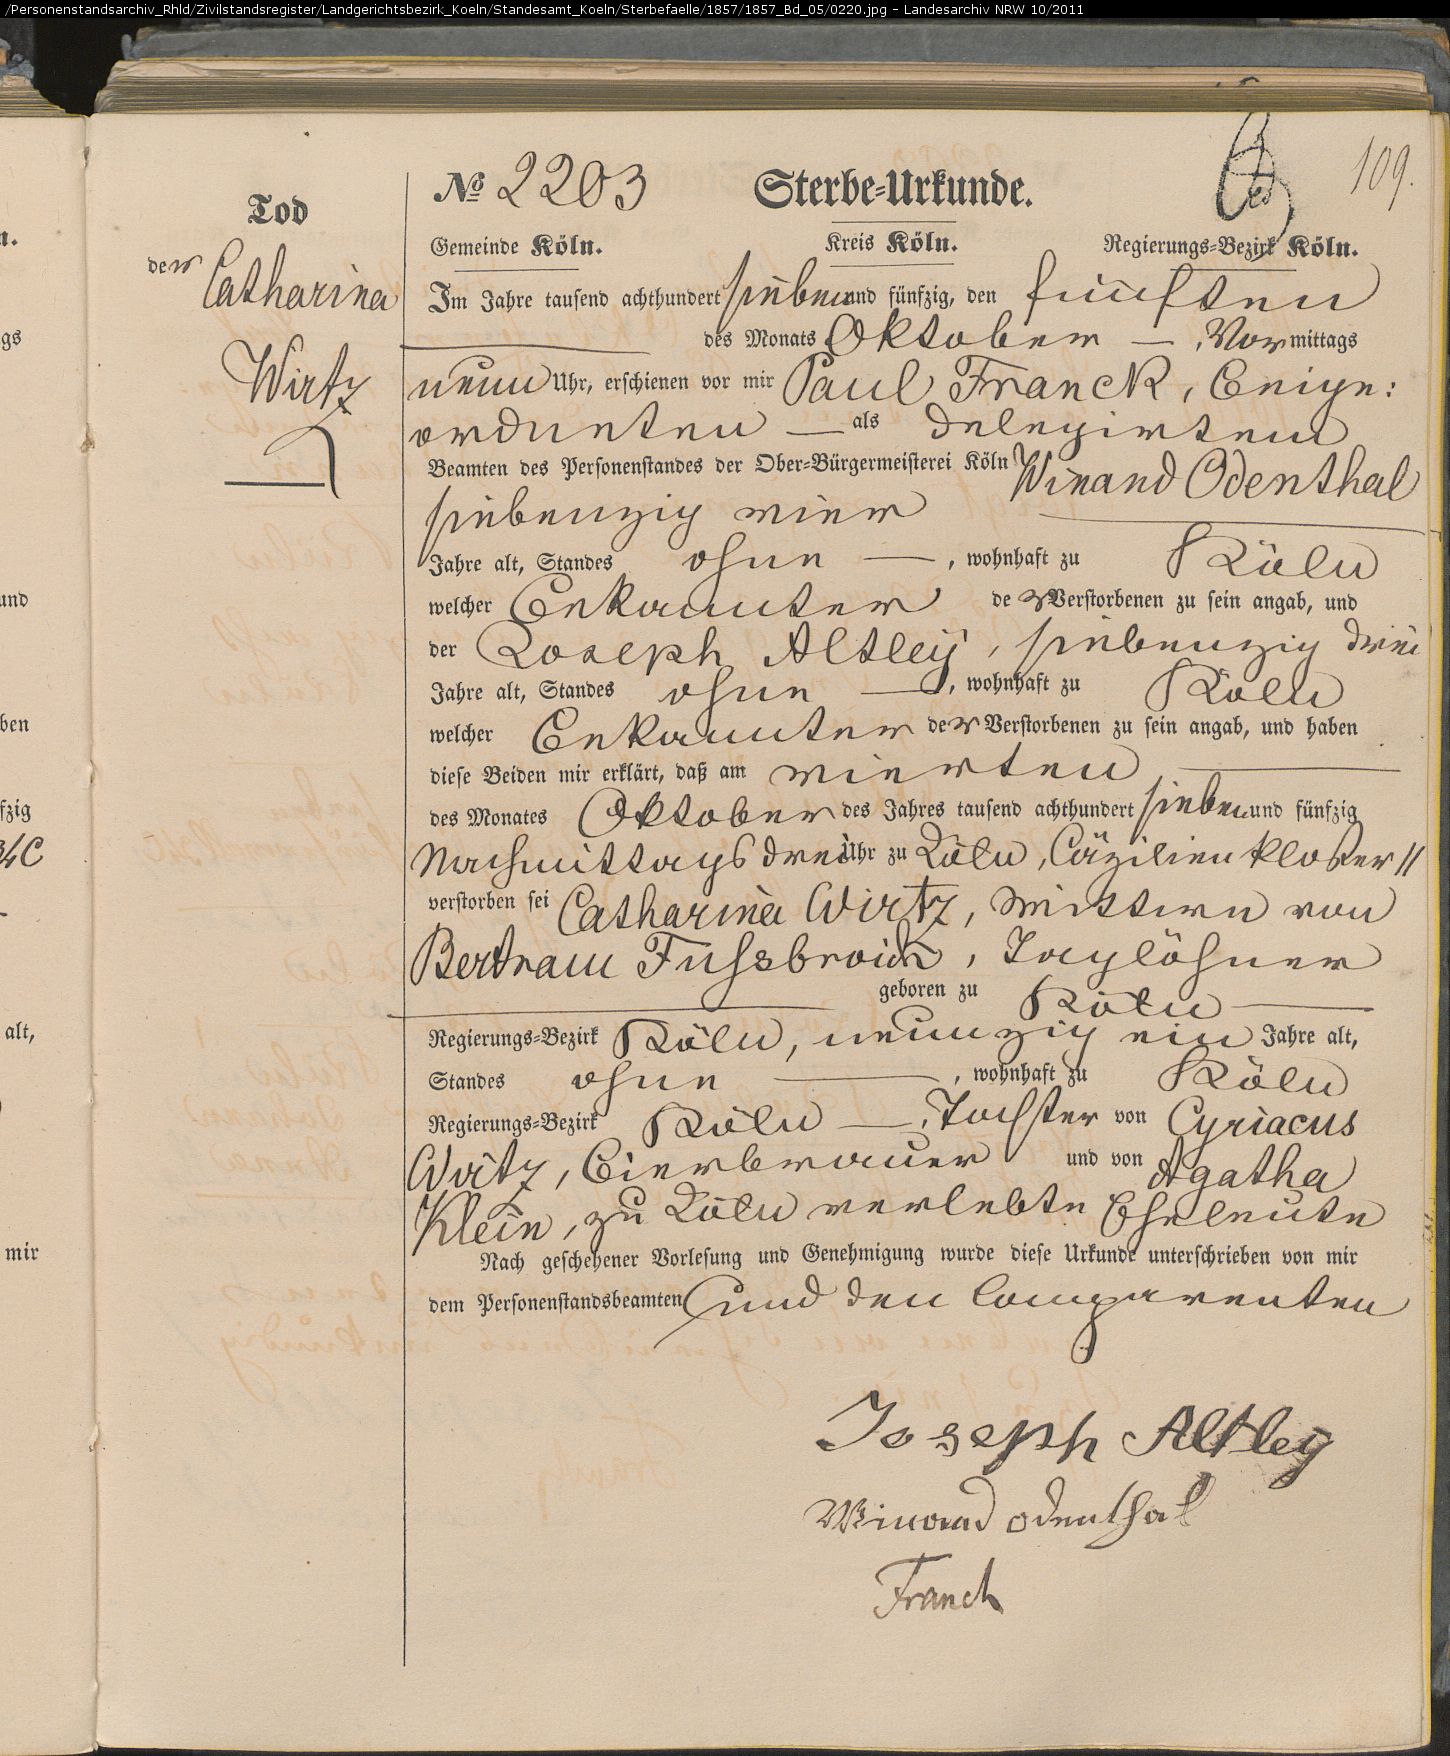 /Personenstandsarchiv_Rhld/Zivilstandsregister/Landgerichtsbezirk_Koeln/Standesamt_Koeln/Sterbefaelle/1857/1857_Bd_05/0220.jpg - Landesarchiv NRW 10/2011
109.
№ 2203 Sterbe-Urkunde.
Tod
der Catharina
Wirtz
Gemeinde Köln. Kreis Köln. Regierungs-Bezirk Köln.
Im Jahre tausend achthundert sieben und fünfzig, den fünften
des Monats Oktober — , Vormittags
neun Uhr, erschienen vor mir Paul Franck, Beige:
ordneten — als delegirtem
Beamten des Personenstandes der Ober-Bürgermeisterei Köln Winand Odenthal
siebenzig vier
Jahre alt, Standes ohne — , wohnhaft zu Köln
welcher Bekannter der Verstorbenen zu sein angab, und
der Joseph Altley, siebenzig drei
Jahre alt, Standes ohne — , wohnhaft zu Köln
welcher Bekannter der Verstorbenen zu sein angab, und haben
diese Beiden mir erklärt, daß am vierten
des Monates Oktober des Jahres tausend achthundert sieben und fünfzig
Nachmittags drei Uhr zu Köln, Cäzilienkloster 11
verstorben sei Catharina Wirtz, Wittwe von
Bertram Fussbroich, Taglöhner
geboren zu Köln —
Regierungs-Bezirk Köln, neunzig ein Jahre alt,
Standes ohne — , wohnhaft zu Köln
Regierungs-Bezirk Köln — , Tochter von Cyriacus
Wirtz, Bierbrauer und von Agatha
Klein, zu Köln verlebte Eheleute
Nach geschehener Vorlesung und Genehmigung wurde diese Urkunde unterschrieben von mir
dem Personenstandsbeamten und den Comparenten
Joseph Altley
Winand Odenthal
Franck
n.
gs
und
ben
fzig
alt,
mir